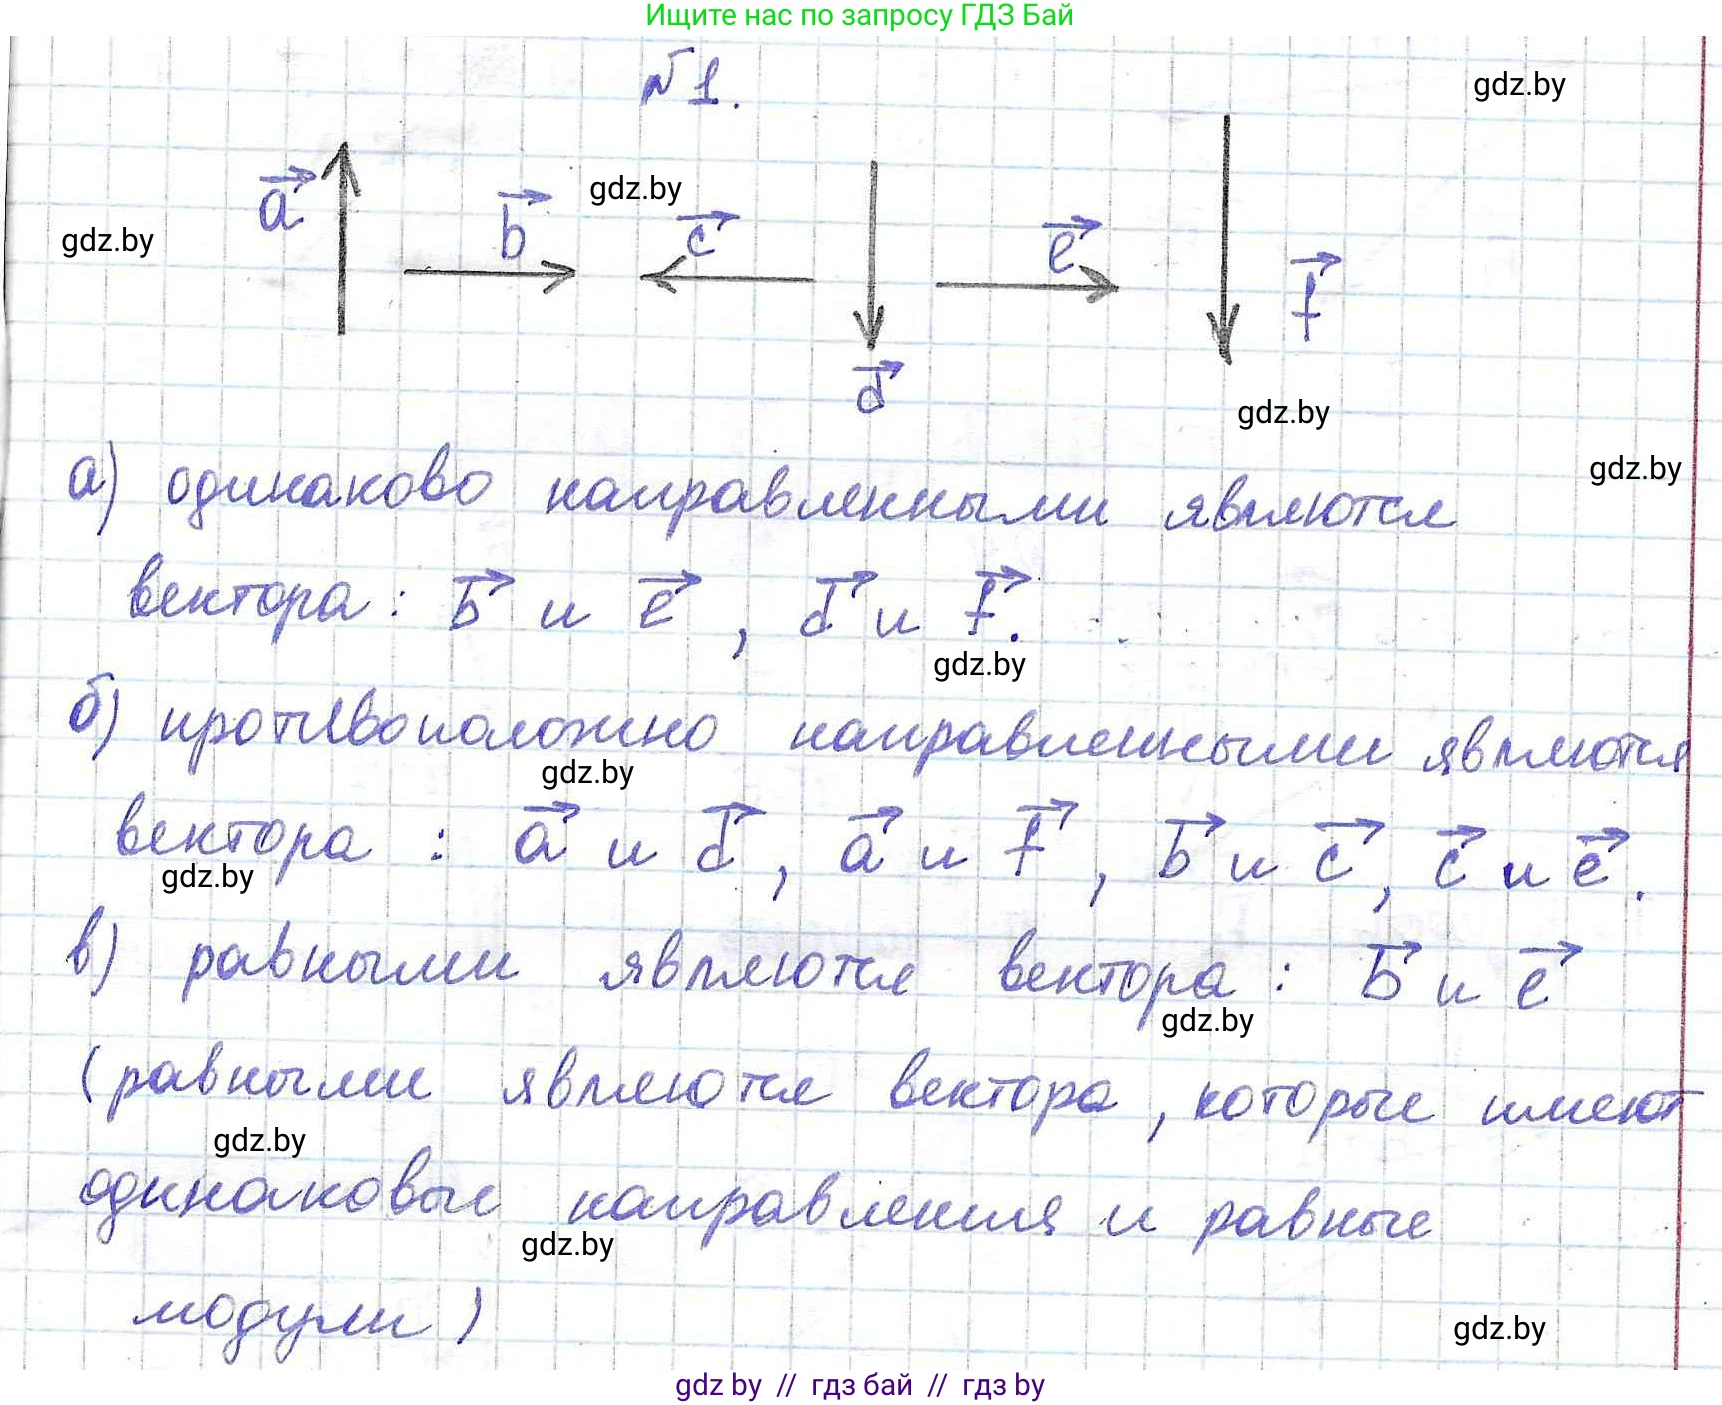 Ищите нас по запросу ГДЗ Бай
№1.
gdz.by
a⃗
gdz.by
b⃗
gdz.by
c⃗
d⃗
e⃗
f⃗
gdz.by
gdz.by
а) одинаково направленными являются
вектора: b⃗ и e⃗, d⃗ и f⃗.
gdz.by
б) противоположно направленными являются
gdz.by
вектора: a⃗ и d⃗, a⃗ и f⃗, b⃗ и c⃗, c⃗ и e⃗.
gdz.by
в) равными являются вектора: b⃗ и e⃗
gdz.by
(равными являются вектора, которые имеют
gdz.by
одинаковые направления и равные
gdz.by
модули)
gdz.by
gdz by // гдз бай // гдз by